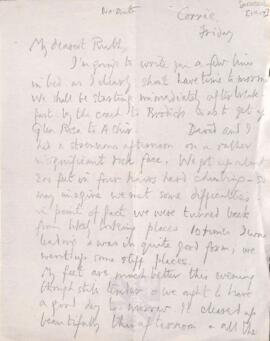 No date
Corrie,
Friday
My dearest Ruth,
I'm going to write you a few lines
in bed as I clearly shan't have time tomorrow
We shall be starting immediately after break
fast by the coach to Brodick & get up
Glen Rosa to A Chir. David and I
had a strenuous afternoon on a rather
insignificant rock face. We got up about
200 feet in four hours hard climbing - so you
may imagine we met some difficulties
in point of fact we were turned back
from likely looking places. I was
leading & was in quite good form, we
went up some stiff places.
My feet are much better this evening
though still tender & we ought to have
a good day to-morrow. It cleared up
beautifully this afternoon & all the